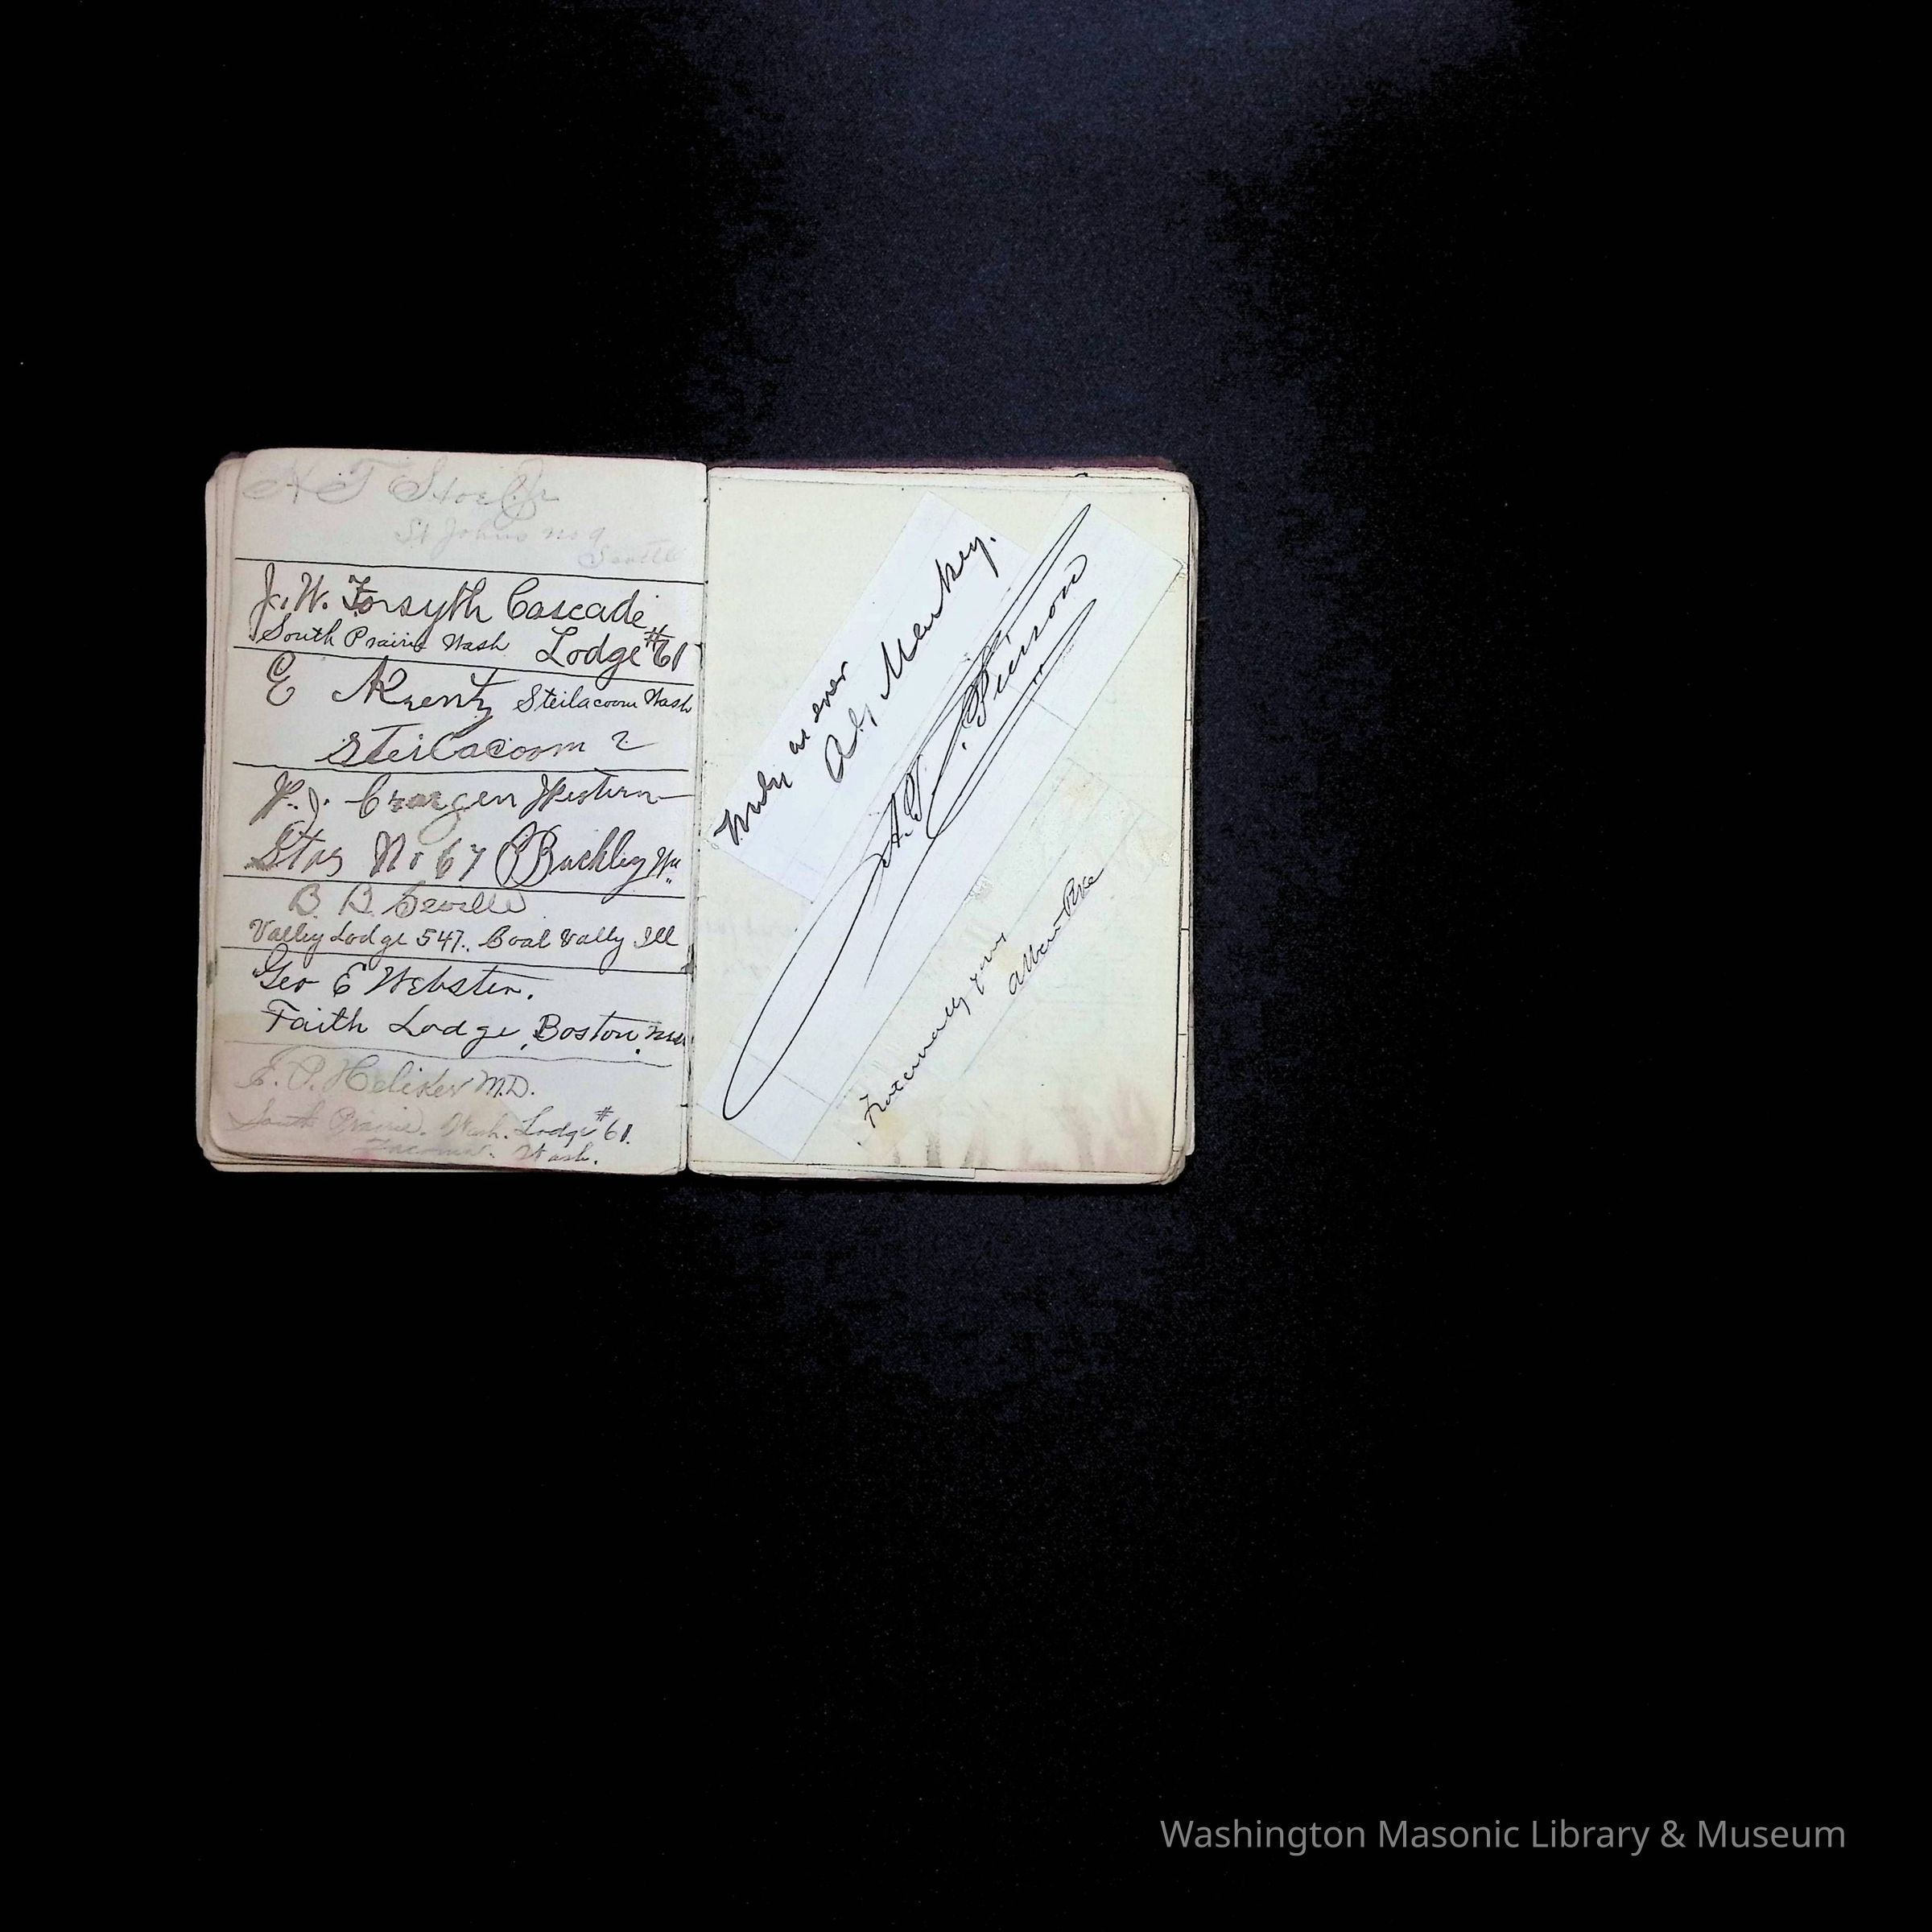 St Johns no 9
Seattle
J. W. Forsyth Cascade
South Prairie Wash Lodge #61
E Krentz Steilacoom Wash
Steilacoom 2
Western
Star No 67 Buckley Wn
B. B.
Valley Lodge 547. Coal Vally Ill
Geo E Webster.
Faith Lodge, Boston.
E. P. Heliker M.D.
South Prairie. Wash. Lodge #61.
Tacoma. Wash.
Truly as ever
A. T. C. Pierson
Fraternally yours
Albert Pike
Washington Masonic Library & Museum